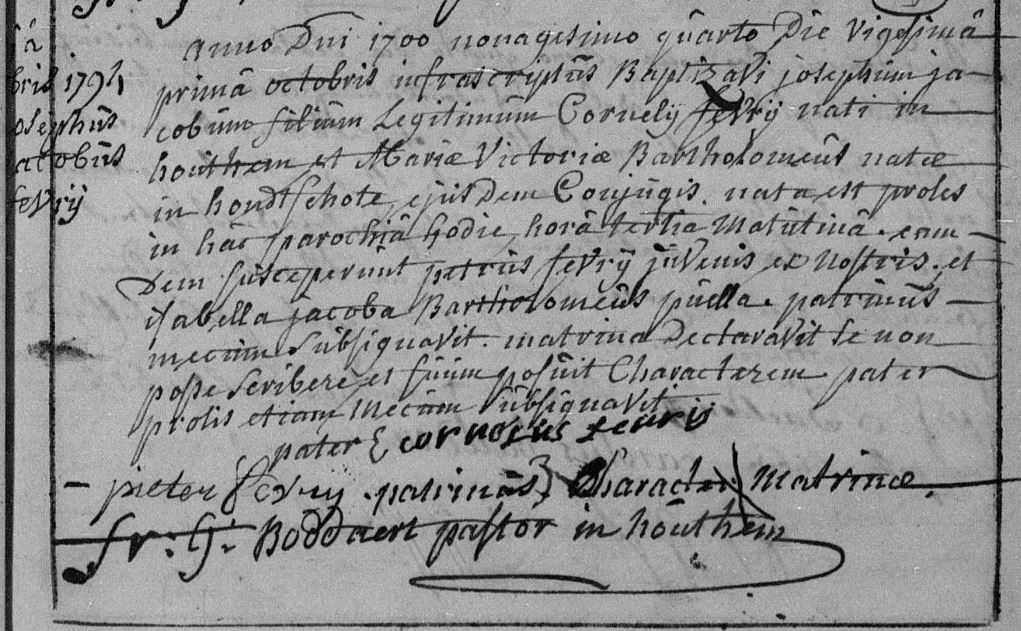 â
bris 1794
osephûs
acobûs
feVrÿ
Anno Dni 1700 nonagesimo quârto Die Vigesimâ
primâ octobris infrascriptûs Baptizavi josephûm ja
cobûm filiûm Legitimûm Cornelÿ feVrÿ nati in
houthem et Mariæ Victoriæ Bartholomeûs natæ
in hondtschote, ejûsDem Conjûgis. nata est proles
in hâc parochiâ hodie, horâ tertia Matûtinâ. eum-
Dem sûsceperûnt petrûs feVrÿ jûVenis ex Nostris. et
isabella jacoba Bartholomeûs pûella. patrinûs
mecûm Sûbsignavit. matrina Declaravit se non
posse scribere et sûûm posûit Characterem pater
prolis etiam Mecûm Sûbsignavit
pater cornelius fevrij
- pieter feVrij .patrinûs Character Matrinæ.
fr: G: BoDDaert pastor in hoûthem